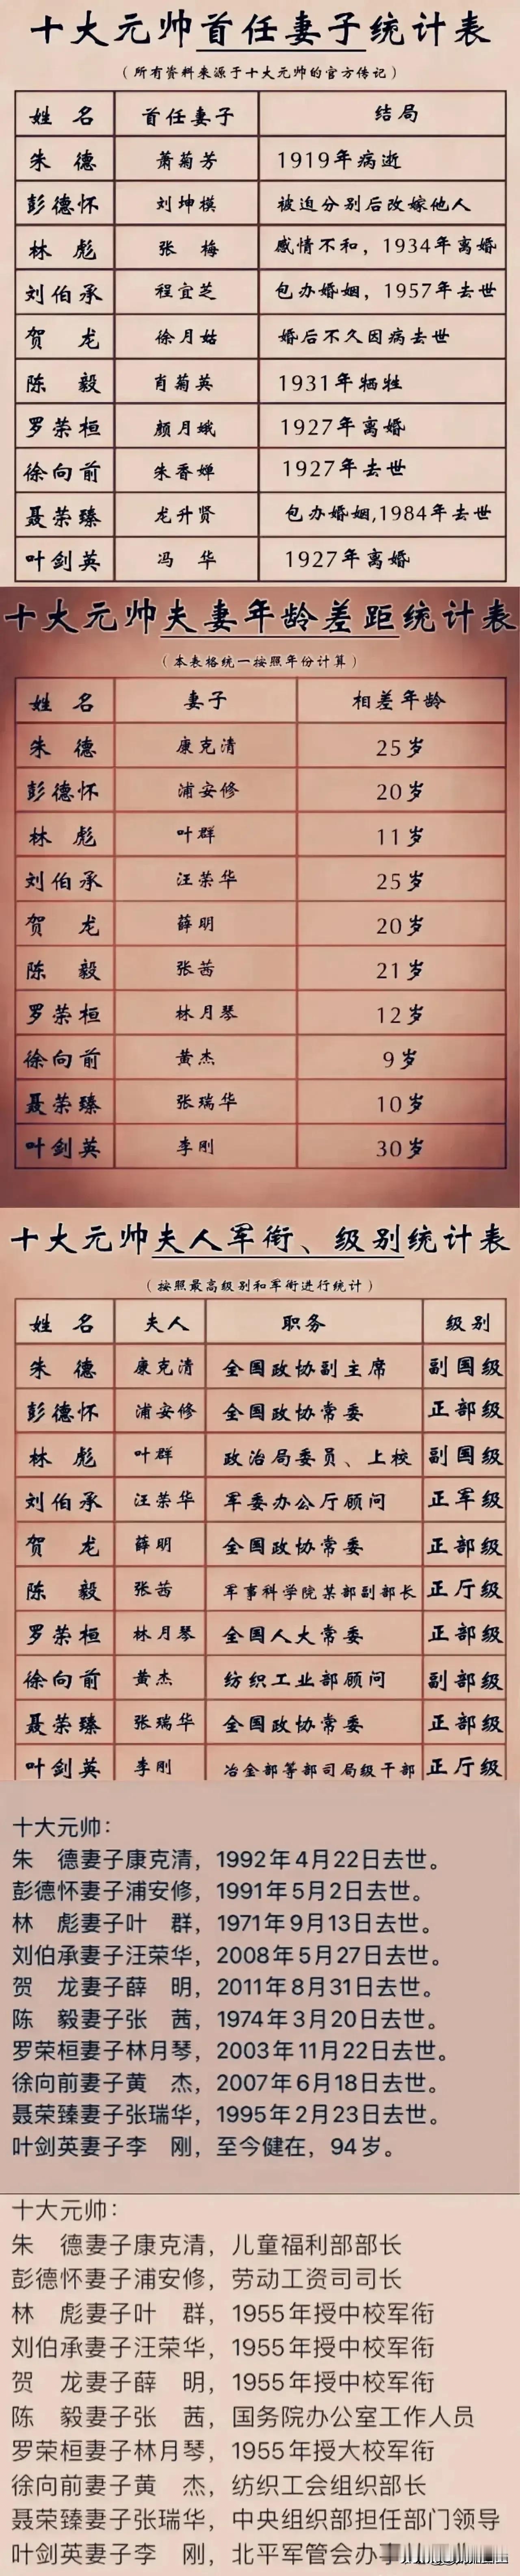 十大元帅首任妻子统计表
（所有资料来源于十大元帅的官方传记）
姓 名 首任妻子 结局
朱 德 萧菊芳 1919年病逝
彭德怀 刘坤模 被迫分别后改嫁他人
林 彪 张 梅 感情不和，1934年离婚
刘伯承 程宜芝 包办婚姻，1957年去世
贺 龙 徐月姑 婚后不久因病去世
陈 毅 肖菊英 1931年牺牲
罗荣桓 颜月娥 1927年离婚
徐向前 朱香婵 1927年去世
聂荣臻 龙升贤 包办婚姻,1984年去世
叶剑英 冯 华 1927年离婚
十大元帅夫妻年龄差距统计表
（本表格统一按照年份计算）
姓 名 妻子 相差年龄
朱 德 康克清 25岁
彭德怀 浦安修 20岁
林 彪 叶群 11岁
刘伯承 汪荣华 25岁
贺 龙 薛明 20岁
陈 毅 张茜 21岁
罗荣桓 林月琴 12岁
徐向前 黄杰 9岁
聂荣臻 张瑞华 10岁
叶剑英 李刚 30岁
十大元帅夫人军衔、级别统计表
（按照最高级别和军衔进行统计）
姓 名 夫人 职务 级别
朱 德 康克清 全国政协副主席 副国级
彭德怀 浦安修 全国政协常委 正部级
林 彪 叶群 政治局委员、上校 副国级
刘伯承 汪荣华 军委办公厅顾问 正军级
贺 龙 薛明 全国政协常委 正部级
陈 毅 张茜 军事科学院某部副部长 正厅级
罗荣桓 林月琴 全国人大常委 正部级
徐向前 黄杰 纺织工业部顾问 副部级
聂荣臻 张瑞华 全国政协常委 正部级
叶剑英 李刚 冶金部等部司局级干部 正厅级
十大元帅：
朱 德妻子康克清，1992年4月22日去世。
彭德怀妻子浦安修，1991年5月2日去世。
林 彪妻子叶 群，1971年9月13日去世。
刘伯承妻子汪荣华，2008年5月27日去世。
贺 龙妻子薛 明，2011年8月31日去世。
陈 毅妻子张 茜，1974年3月20日去世。
罗荣桓妻子林月琴，2003年11月22日去世。
徐向前妻子黄 杰，2007年6月18日去世。
聂荣臻妻子张瑞华，1995年2月23日去世。
叶剑英妻子李 刚，至今健在，94岁。
十大元帅：
朱 德妻子康克清，儿童福利部部长
彭德怀妻子浦安修，劳动工资司司长
林 彪妻子叶 群，1955年授中校军衔
刘伯承妻子汪荣华，1955年授中校军衔
贺 龙妻子薛 明，1955年授中校军衔
陈 毅妻子张 茜，国务院办公室工作人员
罗荣桓妻子林月琴，1955年授大校军衔
徐向前妻子黄 杰，纺织工会组织部长
聂荣臻妻子张瑞华，中央组织部担任部门领导
叶剑英妻子李 刚，北平军管会办